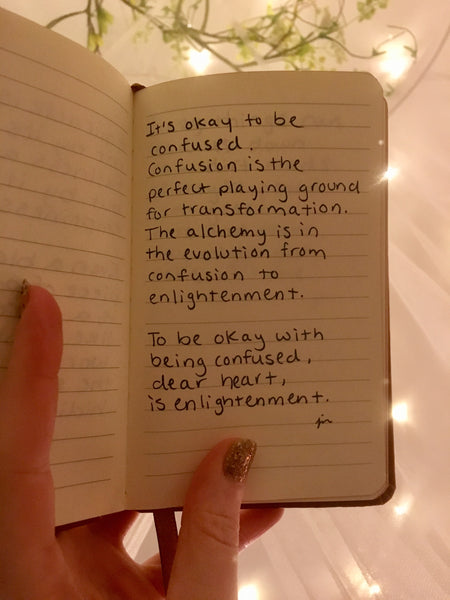 It's okay to be
confused.
Confusion is the
perfect playing ground
for transformation.
The alchemy is in
the evolution from
confusion to
enlightenment.
To be okay with
being confused,
dear heart,
is enlightenment.